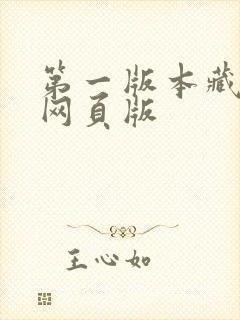 第一版本藏
网页版
王心如